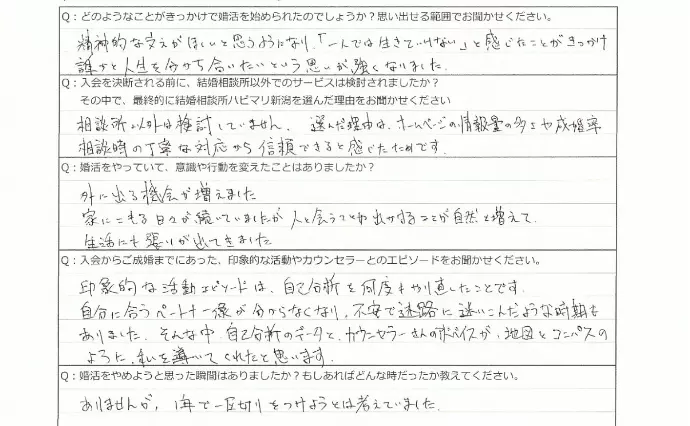 Q：どのようなことがきっかけで婚活を始められたのでしょうか？思い出せる範囲でお聞かせください。
精神的な支えがほしいと思うようになり、「一人では生きていけない」と感じたことがきっかけ
誰かと人生を分かち合いたいという思いが強くなりました。
Q：入会を決断される前に、結婚相談所以外でのサービスは検討されましたか？
その中で、最終的に結婚相談所ハピマリ新潟を選んだ理由をお聞かせください
相談所以外は検討していません。選んだ理由は、ホームページの情報量の多さや成婚率
相談時の丁寧な対応から信頼できると感じたためです。
Q：婚活をやっていて、意識や行動を変えたことはありましたか？
外に出る機会が増えました
家にこもる日々が続いていましたが 人と会うことや出かけることが自然と増えて、
生活にも張りが出てきました
Q：入会からご成婚までにあった、印象的な活動やカウンセラーとのエピソードをお聞かせください。
印象的な活動エピソードは、自己分析を何度もやり直したことです。
自分に合うパートナー像が分からなくなり、不安で迷路に迷いこんだような時期も
ありました。そんな中 自己分析のデータと、カウンセラーさんのアドバイスが、地図とコンパスの
ように、私を導いてくれたと思います。
Q：婚活をやめようと思った瞬間はありましたか？もしあればどんな時だったか教えてください。
ありませんが、1年で一区切りをつけようとは考えていました。